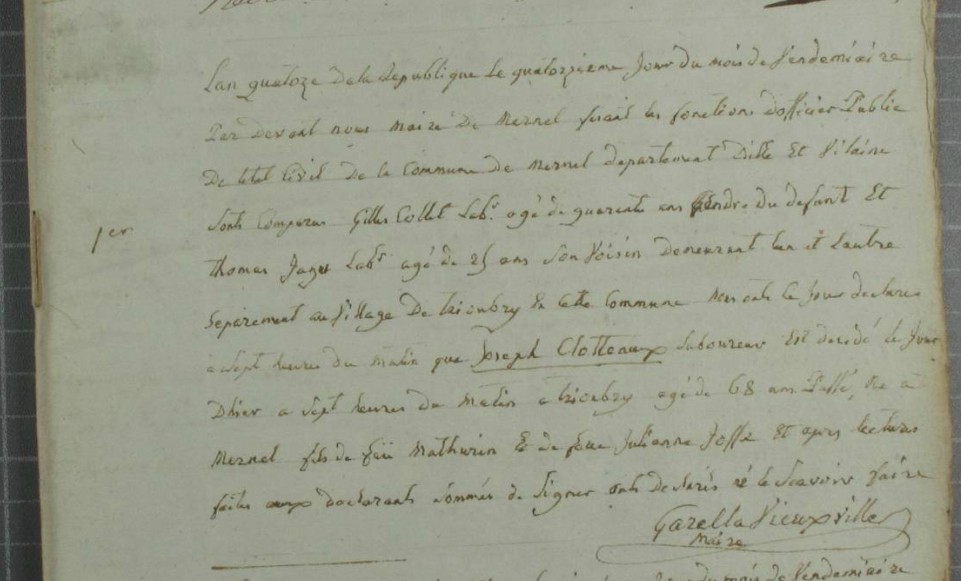 Lan quatoze De la Republique Le quatorzieme Jour du mois de Vendemiaire
Par Devant nous maire De mernel fesant les fonctions dofficier Public
De letat Civil De la Commune de mernel departement Dille Et Vilaine
Sont Comparus Gilles Collet Lab.r agé de quarante ans Gendre du defunt Et
1er
thomas Jaget Lab.r agé de 25 ans Son Voisin demeurant lun et Lautre
Separement au Village De tricubry de cette Commune nous ont le Jour declaré
a Sept heures du matin que Joseph Clotteaux laboureur Est decedé le Jour
Dhier a Sept heures du matin a tricubry agé de 68 ans Passé, Né a
Mernel fils de feu Mathurin Et de feue Julienne Joffé Et apres lecture
faite aux declarants sommés de Signer ont declarés né le Scavoir faire
Garella Vieuxville
Maire
du mois de Vendemiaire